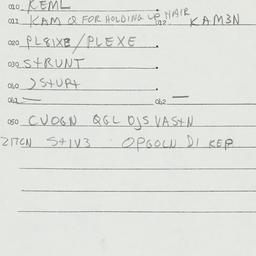 010 KEML
011 KAM Q FOR HOLDING UP HAIR 012 KAM3N
020 PLEIXE/PLEXE
030 S+RUNT
040
041 — 042 —
050 CVOGN QGL DJS VAS+N
S+IV3 OPGOLN DI KEP